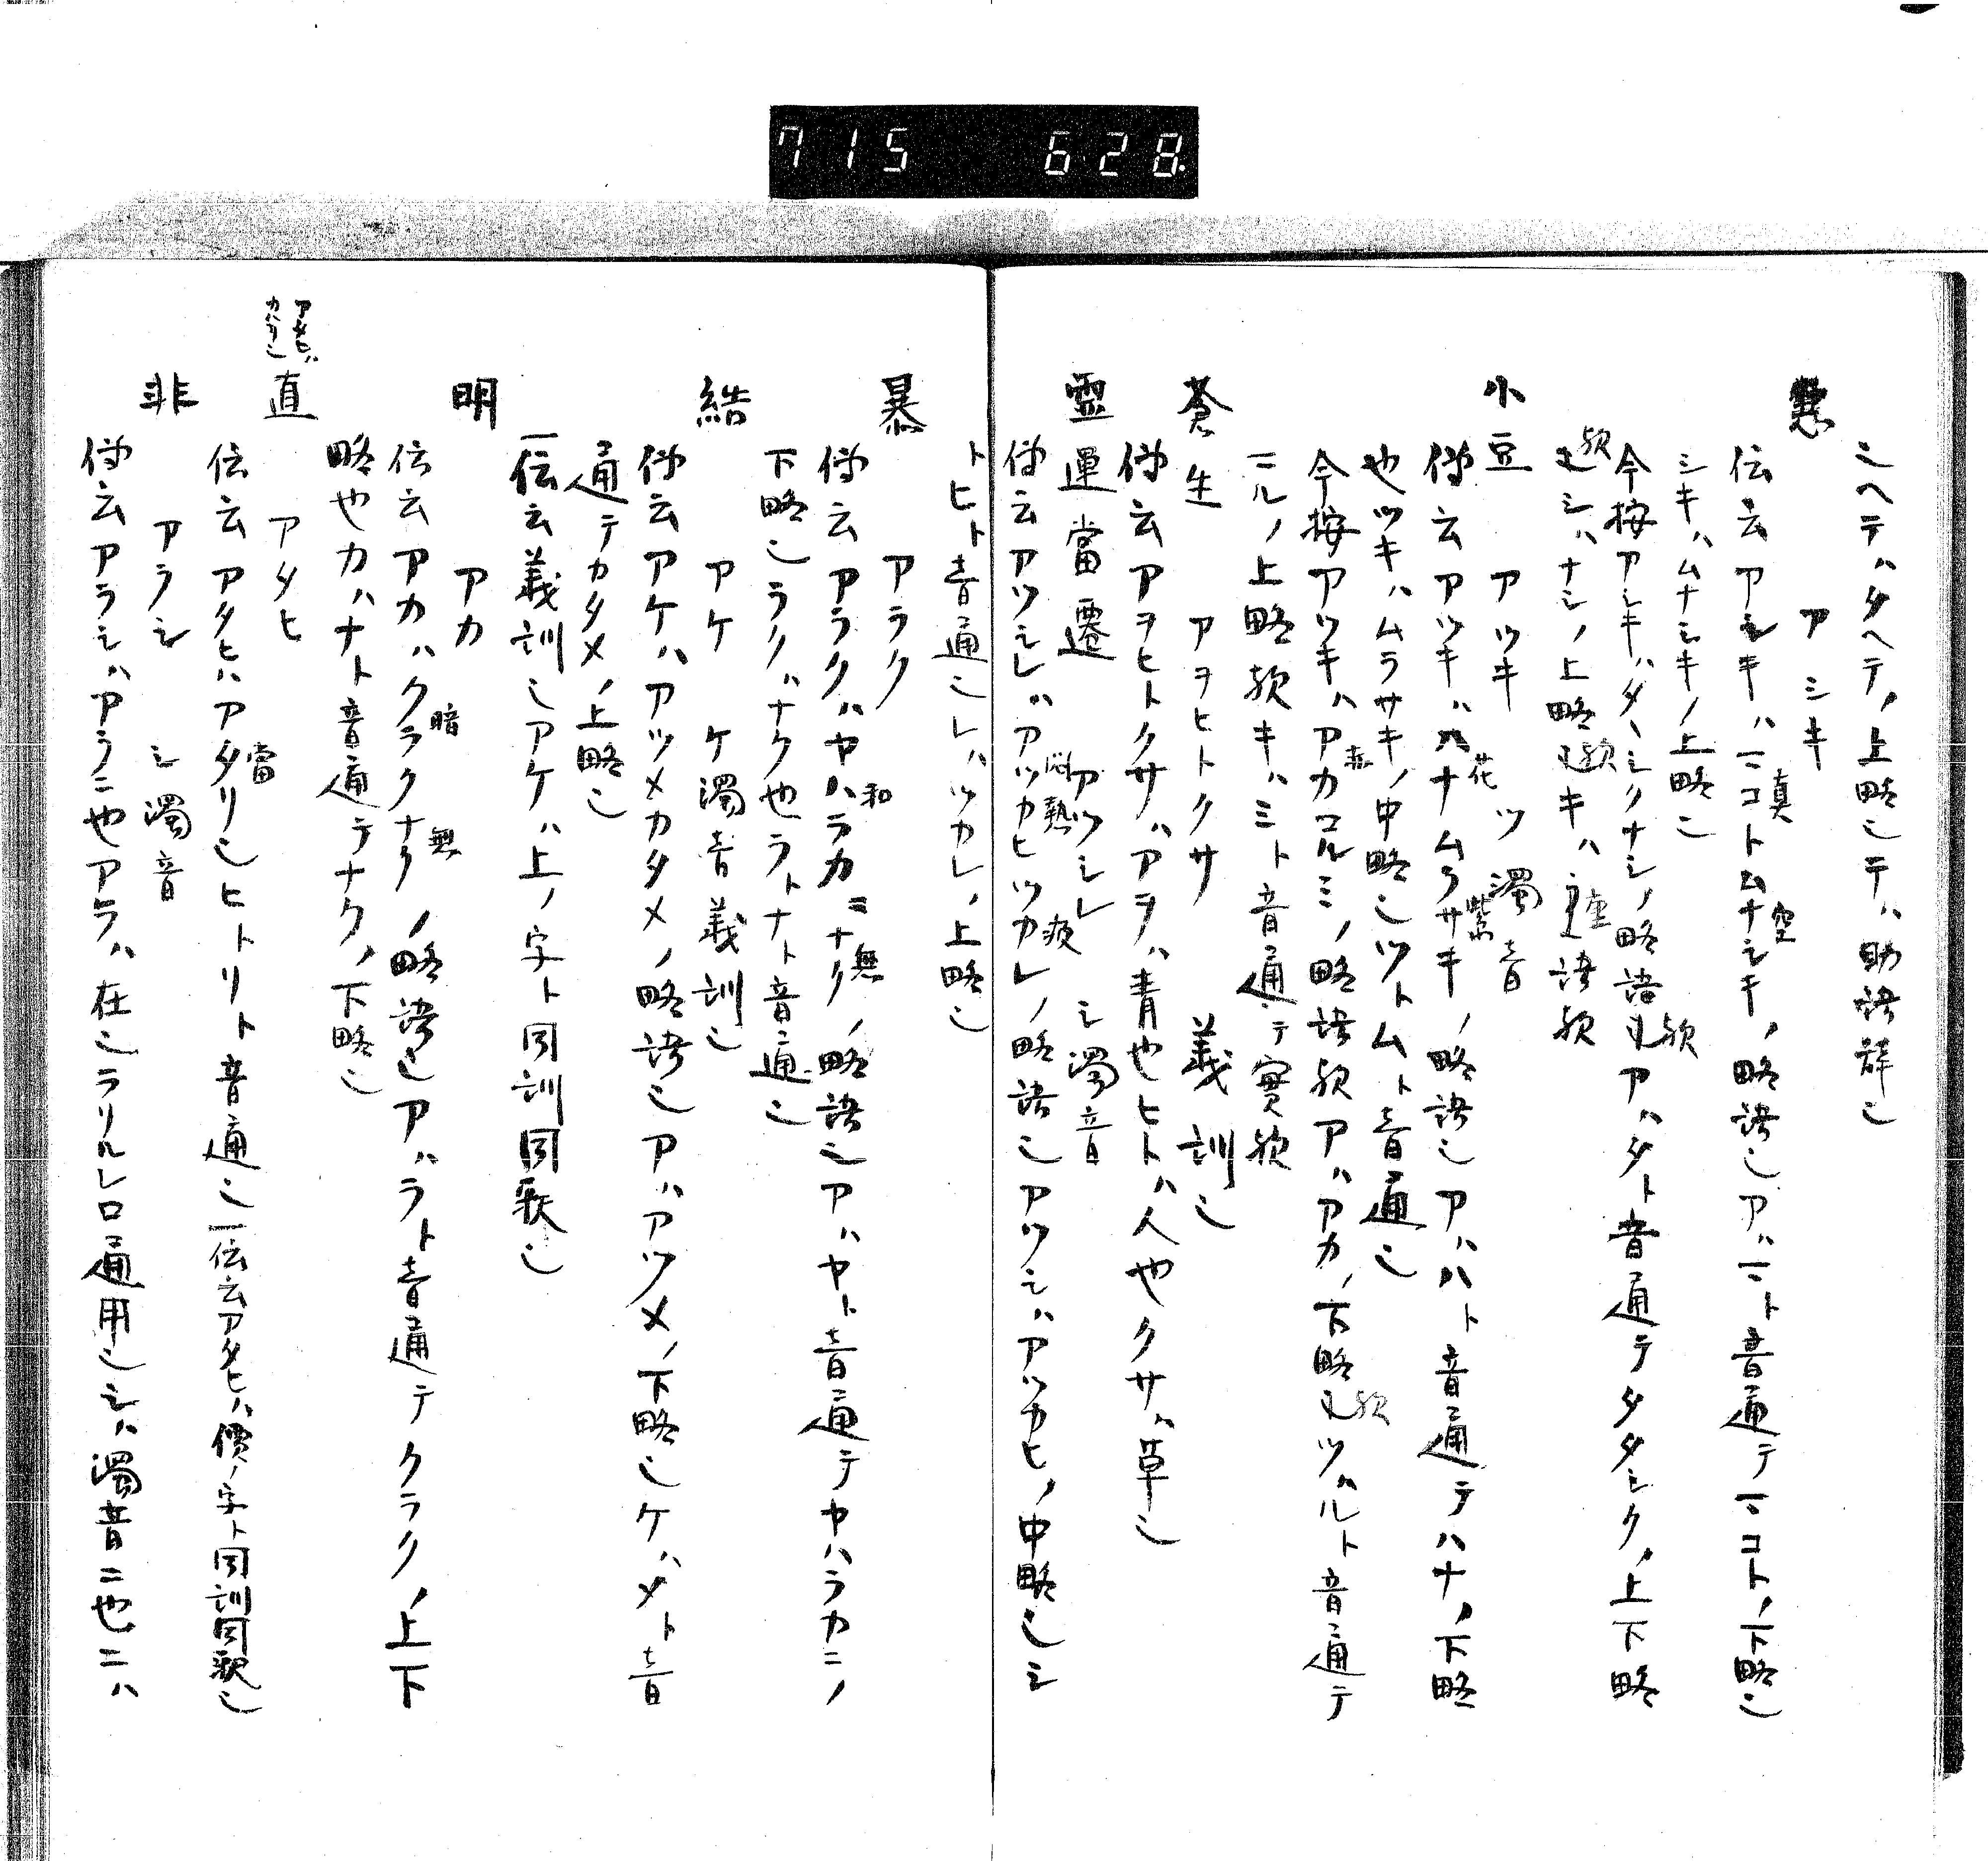 715 628
シヘテハタヘテノ上略也テハ助語辞也
悪 アシキ
伝云アシキハマコトムナシキノ略語也アハマト音通テマコトノ下略也
真 空
シキハムナシキノ上略也
今按アシキハタヽシクナシノ略語也歟アハタト音通テタタシクノ上下略
也歟シハナシノ上略也歟キハ 語歟
小豆 アツキ ツ濁音
伝云アツキハハナムラサキノ略語也アハハト音通テハナノ下略
花 紫
也ツキハムラサキノ中略也ツトムト音通也
今按アツキハアカマルミノ略語歟アハアカノ下略也歟ツハルト音通テ
赤
マルノ上略歟キハミト音通テ實歟
蒼生 アヲヒトクサ 義訓也
伝云アヲヒトクサハアヲハ青也ヒトハ人也クサハ草也
霊運當遷 アツシレ シ濁音
伝云アツシレハアツカヒツカレノ略語也アツシハアツカヒノ中略也シ
熱 疲
トヒト音通也レハツカレノ上略也
暴 アラク
伝云アラクハヤハラカニナクノ略語也アハヤト音通テヤハラカニノ
和 無
下略也ラクハナク也ラトナト音通也
結 アケ ケ濁音義訓也
伝云アケハアツメカタメノ略語也アハアツメノ下略也ケハメト音
通テカタメノ上略也
一伝云義訓也アケハ上ノ字ト同訓同歌也
明 アカ
伝云アカハクラクナクノ略語也アハラト音通テクラクノ上下
暗 無
略也カハナト音通テナクノ下略也
直 アタヒ
伝云アタヒハアタリ也ヒトリト音通也一伝云アタヒハ價ノ字ト同訓同歌也
當
非 アラシ シ濁音
伝云アラシハアラニ也アラハ在也ラリルレロ通用也シハ濁音ニ也ニハ